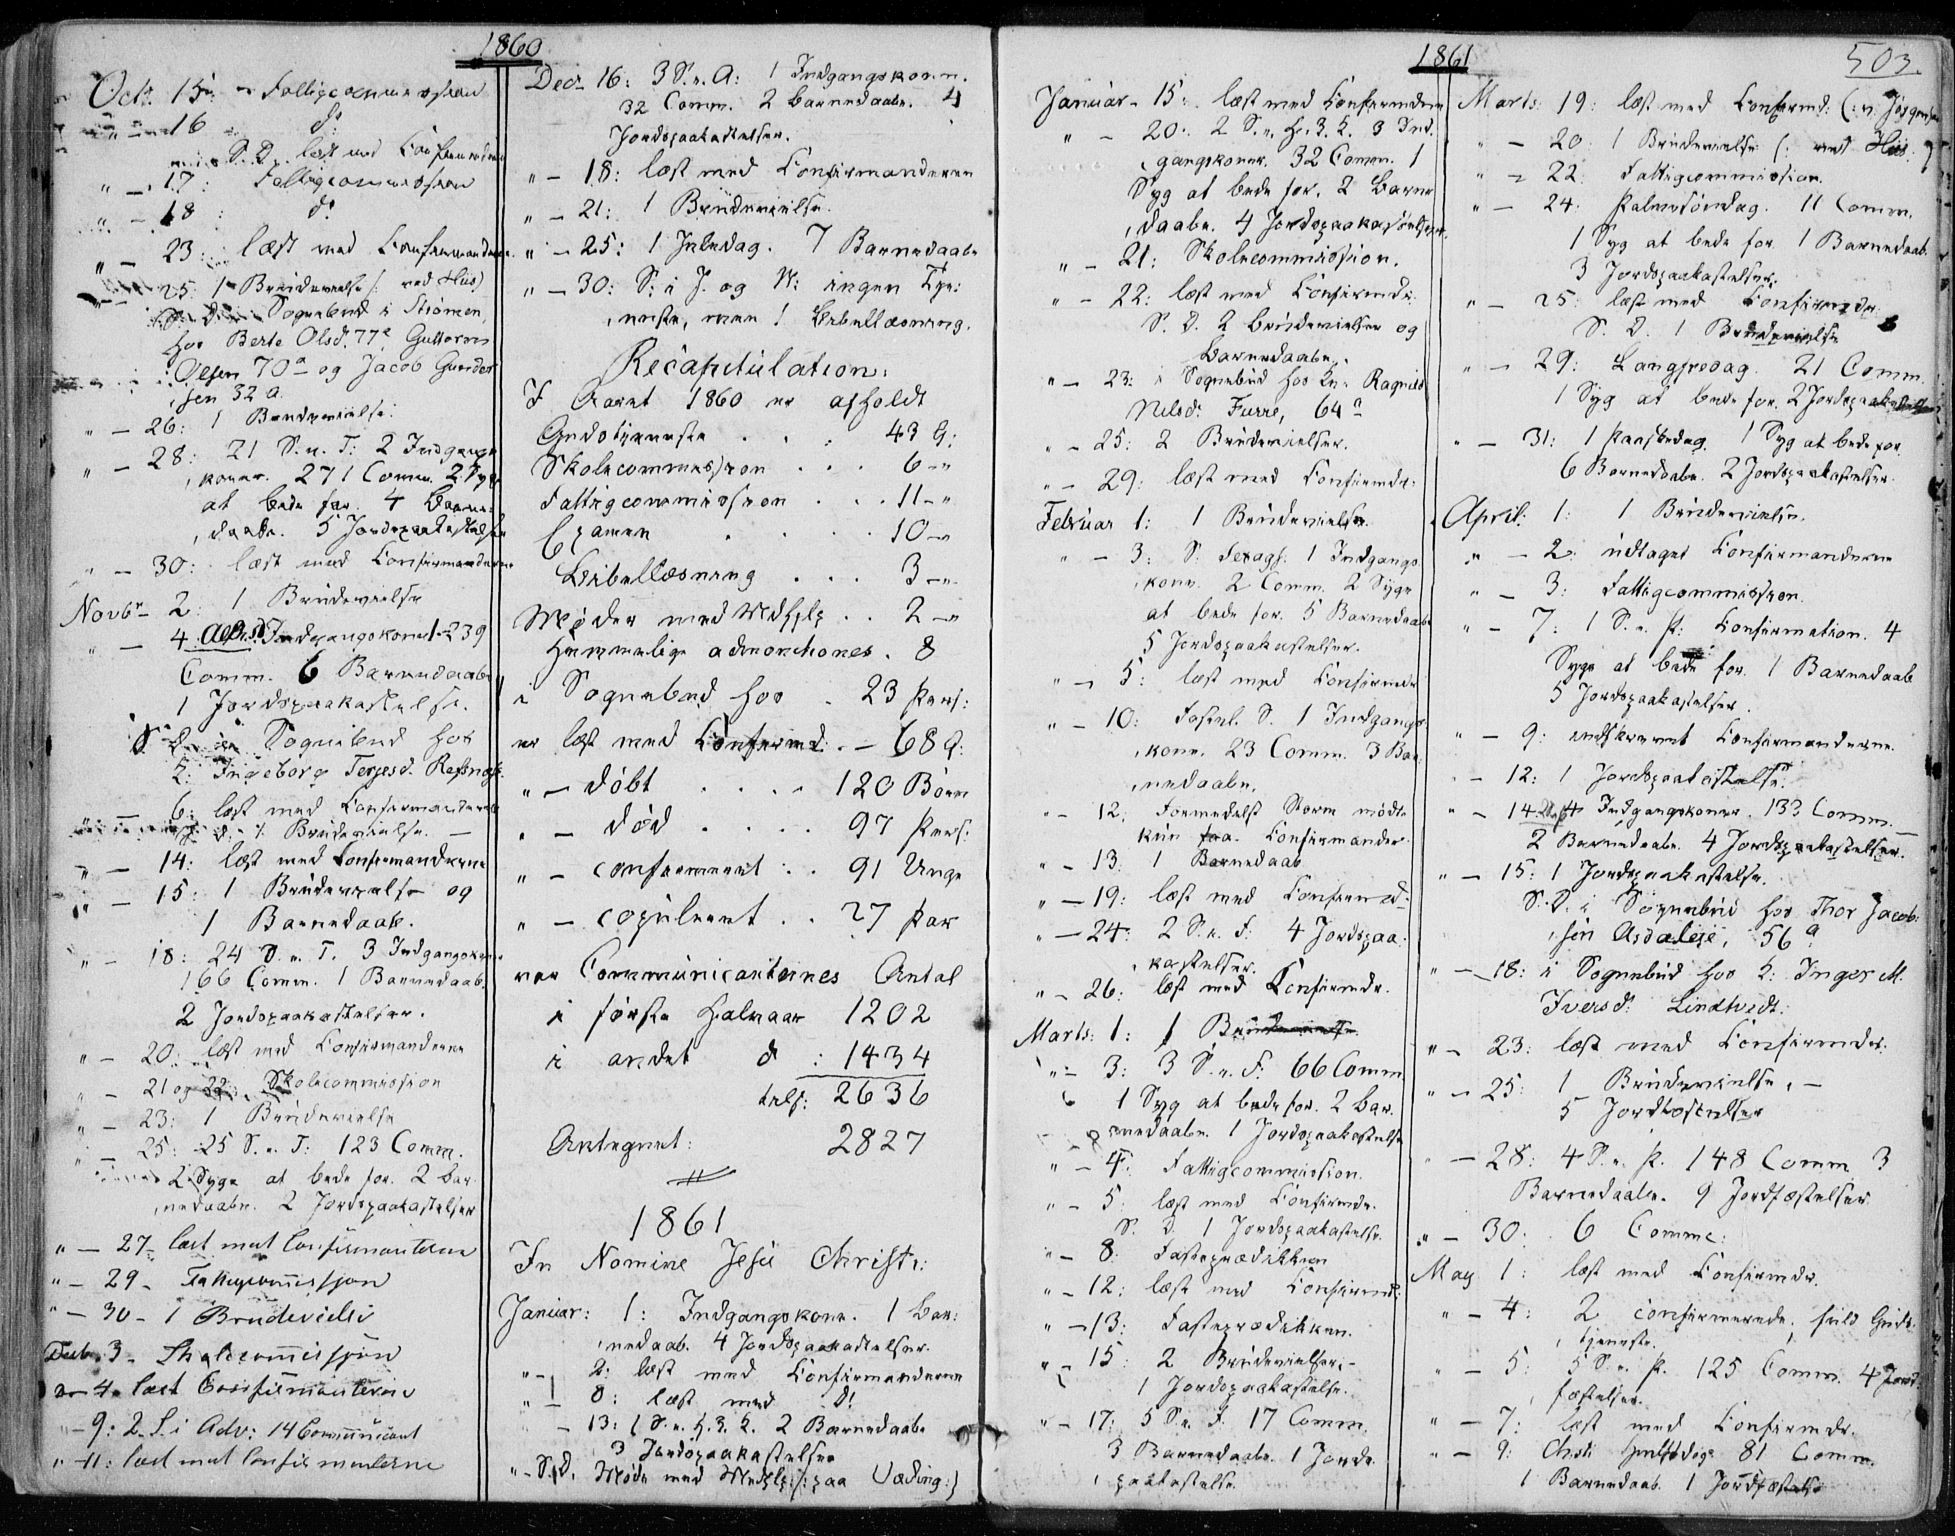 1860
Octr. 15: - Fattigcommission
" - 16 do
S. D. læst med Confirmanderne
" - 17: Fattigcommission
" - 18: do
" - 23: læst med Confirmanderne
" - 25: 1 Brudevielse (: ved Huus)
S. d. i Sognebud i Strømen,
hos Berte Olsd. 77a, Guttorm
Olsen 70a og Jacob Gunder
sen 32 a.
" - 26: 1 Brudevielse:
" - 28: 21 S. e. T: 2 Indgangs
koner. 271 Comm. 2 Syge
at bede for. 4 Barne
daabe. 5 Jordspaakastelser
" - 30: læst med Confirmanderne
Novbr - 2: 1 Brudevielse
" - 4. Indgangskone 239
Comm. 6 Barnedaabe
1 Jordspaakastelse.
S. d. i Sognebud hos
Ingeborg Terjesd.
6: læst med Confirmanderne
S. d. 1 Brudevielse. -
" - 14: læst med Confirmanderne
" - 15: 1 Brudevielse og
1 Barnedaab.
" - 18: 24 S. e. T. 3 Indgangskoner
166 Comm. 1 Barnedaab.
2 Jordspaakastelser.
" - 20: læst med Confirmanderne
" - 21 og 22: Skolecommission
" - 23: 1 Brudevielse
" - 25: 25 S. e. T: 123 Comm.
2 Syge at bede for. 2 bar
nedaabe. 2 Jordspaakastelser
" - 27: læst met Confirmanterne
" - 29 - Fattigcom̄issjon
" - 30 - 1 Brudevielse
Decb. 3 - Skolecom̄issjon
" - 4. læst Confirmanterne
" - 9: 2 S. i Adv: 14 Com̄unicant
" - 11: læst met Confirmanterne
Decr. 16: 3 S. e. A: 1 Indgangskone.
32 Comm. 2 barnedaabe. 4
Jordspaakastelser.
" - 18: læst med Confirmanderne
" - 21: 1 Brudevielse.
" - 25: 1 Juledag. 7 Barnedaabe
" - 30: S: i J. og N: ingen Tje:
neste, men 1 Bibellæsning.
Recapitulation:
I Aaret 1860 er afholdt
Gudstjeneste . . . 43 G:
Skolecommission . . . 6 - "
Fattigcommission . . . 11 - "
Examen . . . . 10 - "
Bibellæsning . . . 3 - "
Møder med Medhjlp . . 2 - "
Hemmelige admonitiones . 8
i Sognebud hos . 23 Pers:
er læst med Confirmd: . - 68 G:
" - døbt . . . . 120 Børn
" - død . . . . 97 Pers:
" - confirmeret . . 91 Unge
" - copuleret . . 27 Par
var Communicanternes Antal
i første Halvaar 1202
i andet do : 1434
tils: 2636
Antegnet: 2827
1861
In Nomine Jesu Christi:
Januar: 1: Indgangskone. 1 bar:
nedaab. 4 Jordspaakastelser.
" - 2: læst med Confirmanderne
" - 8: læst med do
- 13: 1 S. e. H. 3. K. 2 Barnedaabe
3 Jordspaakastelser
" - S. d. Møde med Medhjlp: (: paa Uading:)
1861
503.
Januar - 15: læst med Confirmdene
" - 20: 2 S. e. H. 3. K. 3 Ind
gangskoner. 32 Comm. 1
Syg at bede for. 2 Barne
daabe. 4 Jordspaakastelser.
" - 21: Skolecommission.
" - 22: læst med Confirmd:
S. D. 2 brudevielser og
Barnedaabe.
" - 23: i Sognebud hos Ragnild
Nilsd: Furre, 64a
" - 25: 2 Brudevielser.
" - 29: læst med Confirmde:
Februar 1: 1 Brudevielse.
" - 3: S. Sexags. 1 Indgangs
kone. 2 Comm. 2 Syge
at bede for. 5 Barnedaabe
5 Jordspaakastelser.
" - 5: læst med Confirmde
" - 10: Fastel. S. 1 Indgangs
kone. 23 Comm. 3 Bar
nedaabe.
" - 12: Formedelst Storm mødte
kun faa Confirmander.
" - 13: 1 Barnedaab
" - 19: læst med Confirmd:
" - 24: 2 S. e. F. 4 Jordspaa:
kastelser.
" - 26: læst med Confirmde.
Marts: 1: 1 Brudevielse.
" - 3: 3 S. e. F. 66 Comm.
1 Syg at bede for. 2 bar.
nedaabe. 1 Jordspaakastelse
" - 4: Fattigcommission.
" - 5: læst med Confirmde.
S. D. 1 Jordspaakastelse.
" - 8: Fasteprædikken
" - 12: læst med Confirmd:
" - 13: Fasteprædikken.
" - 15: 2 Brudevielser. -
1 Jordspaakastelse.
" - 17: 5 S. e. F. 17 Comm.
3 Barnedaabe. 1 Jords
paakastelse.
Marts: 19: læst med Confirmd:
" - 20: 1 Brudevielse (: ved Huus:)
" - 22: Fattigcommission.
" - 24: Palmesöndag. 11 Comm.
1 Syg at bede for. 1 Barnedaab.
3 Jordspaakastelser.
" - 25: læst med Confirmde.
S. D. 1 Brudevielse
" - 29: Langfredag. 21 Comm.
1 Syg at bede for. 2 Jordspaakastelser
" - 31: 1 Paaskedag. 1 Syg at bede for.
6 Barnedaabe. 2 Jordspaakastelser.
April: 1: 1 Brudevielse.
" - 2: udtaget Confirmanderne
" - 3: Fattigcommission.
" - 7: 1 S. e. P: Confirmation. 4
Syge at bede for. 1 Barnedaab
5 Jordspaakastelser.
" - 9: indskrevet Confirmanderne.
" - 12: 1 Jordspaakastelse.
" - 14: 4 Indgangskoner. 133 Comm.
2 Barnedaabe. 4 Jordspaakastelser.
" - 15: 1 Jordspaakastelse.
S. D. i Sognebud hos Thor Jacob:
sen Asdaleie, 56a.
" - 18: i Sognebud hos K: Inger M.
Iversd: Lindtvedt.
" - 23: læst med Confirmde.
" - 25: 1 Brudevielse. -
5 Jordfæstelser
" - 28: 4 S. e. P. 148 Comm 3
Barnedaabe. 9 Jordfæstelser
" - 30: 6 Comme:
May 1: læst med Confirmde.
" - 4: 2 confirmerede, Guds
tjeneste.
" - 5: 5 S. e. P. 125 Comm. 4 Jord
fæstelser.
" - 7: læst med Confirmde.
" - 9: Christi Himlfdsdag 81 Comm.
1 Barnedaab. 1 Jordfæstelse